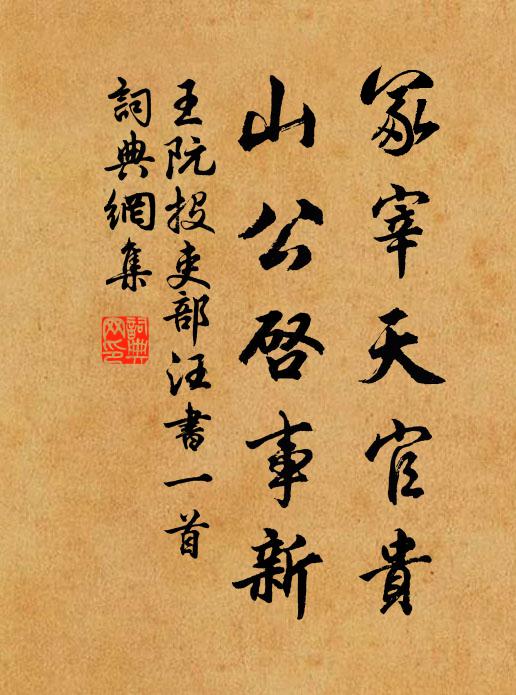 冢宰天官貴
山公啓事新
王阮投吏部汪書一首
詞典網集
詞典網印